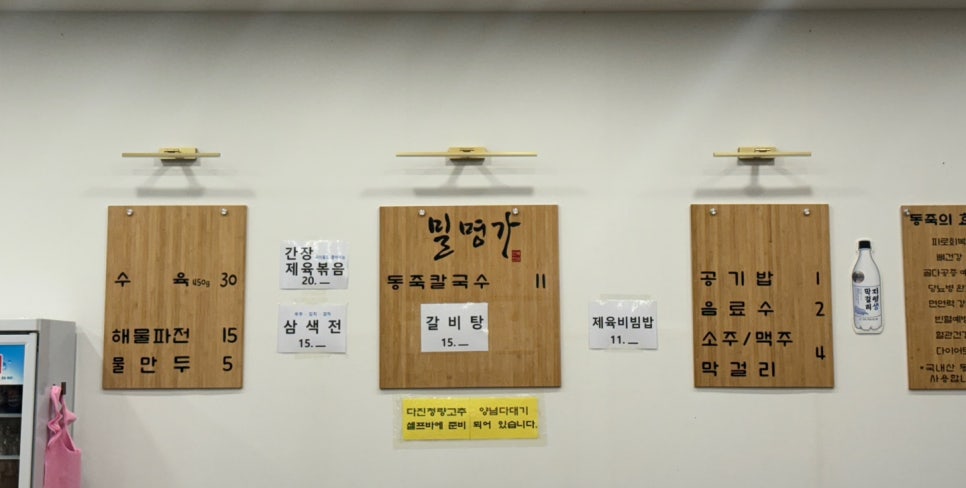 수 육 450g 30
해물파전 15
물만두 5
간장
제육볶음
20.
삼색전
15.
밀명가
동죽칼국수 11
갈비탕
15.
제육비빔밥
11.
공기밥 1
음료수 2
소주/맥주
막걸리 4
지평생
막걸리
다진청량고추 양념다대기
셀프바에 준비 되어 있습니다.
동죽의
피로회복
뼈건강
골다공증
당뇨병
면연력
빈혈예방
혈관건강
다이어트
*국내산